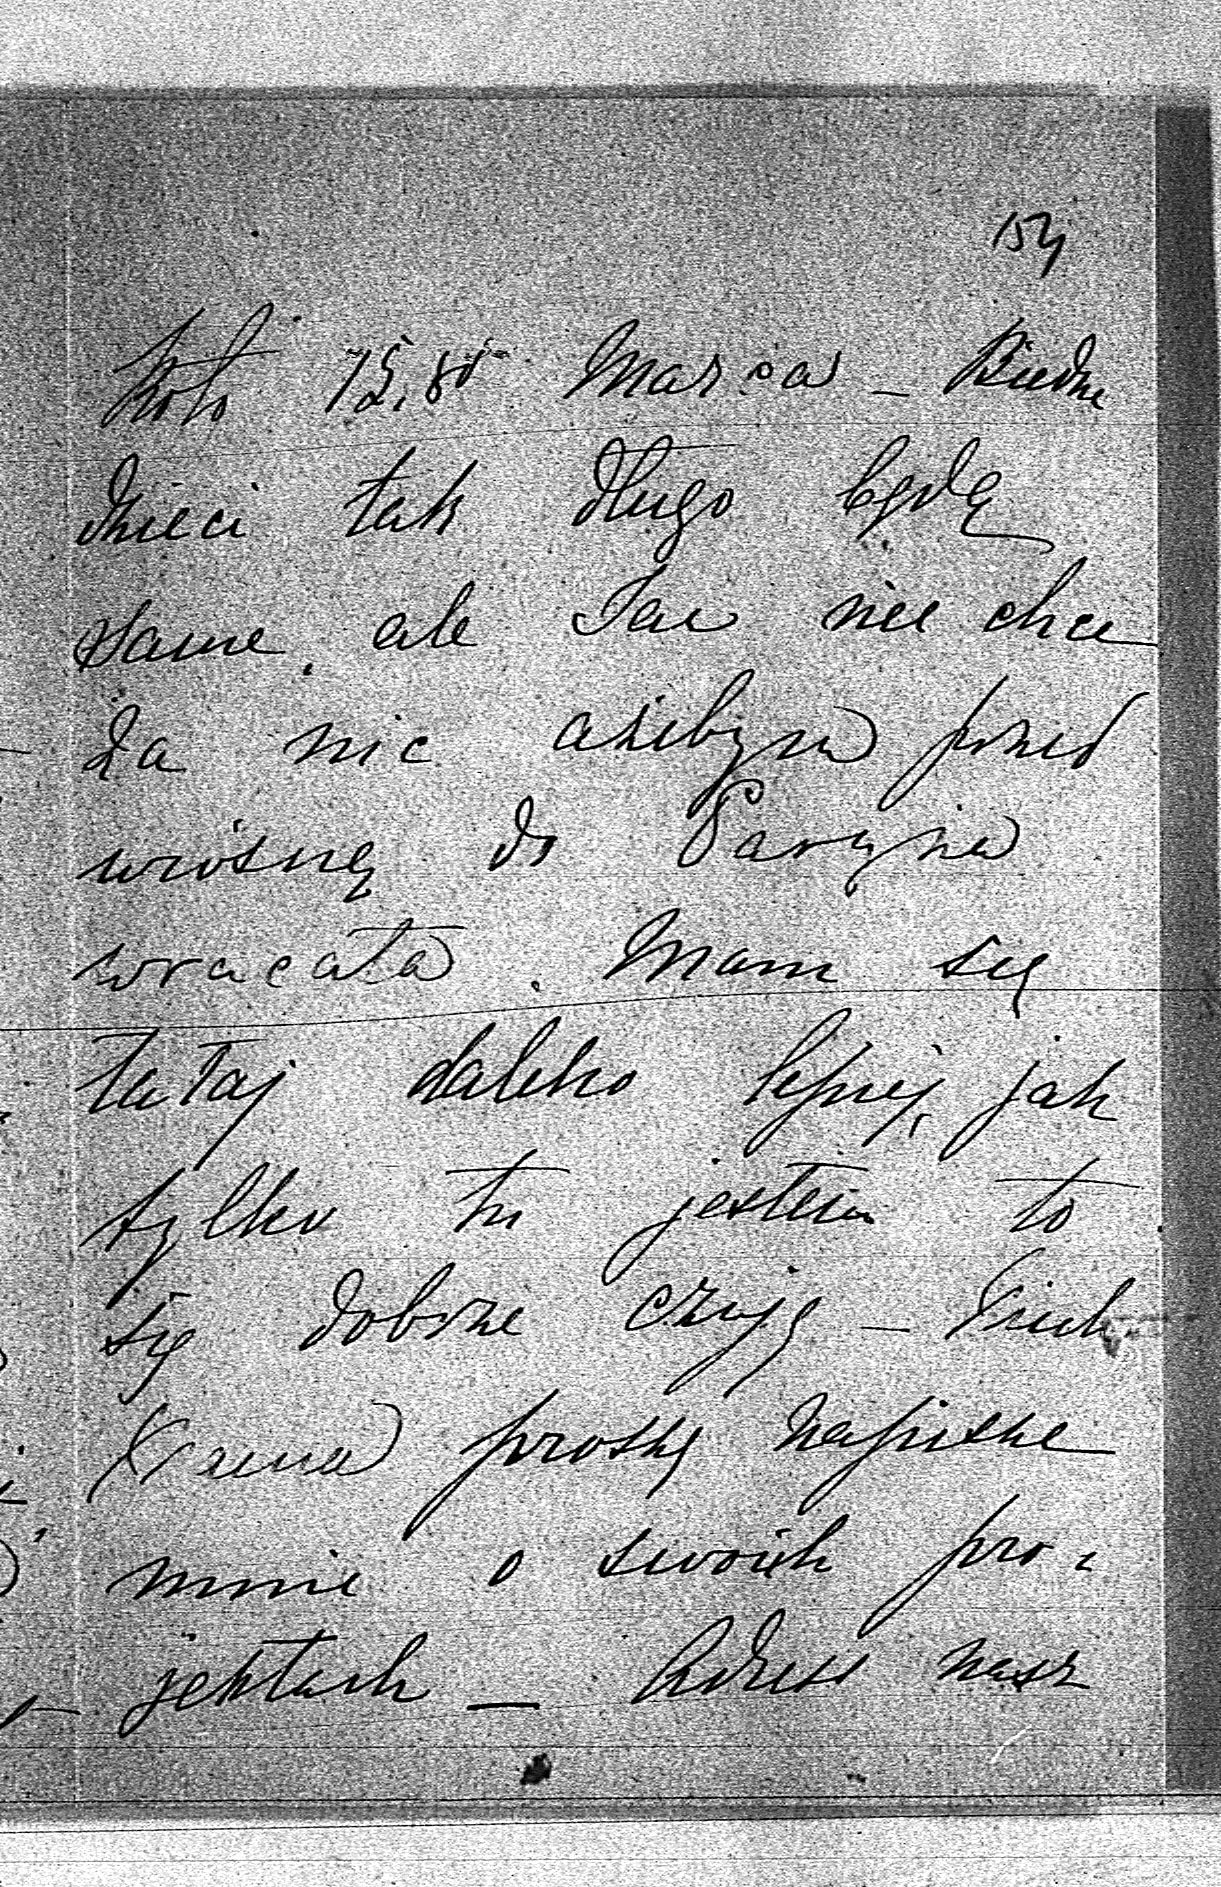 154
koło 15, Marca – Biedne
dzieci tak długo będą
same, ale Jan nie chce
za nic ażebym przed
wiosną do Paryża
wracała. Mam się
tutaj daleko lepiej, jak
tylko tu jestem to
się dobrze czuję – Niech
proszę napisze
mnie o swoich pro=
jektach – Adress nasz